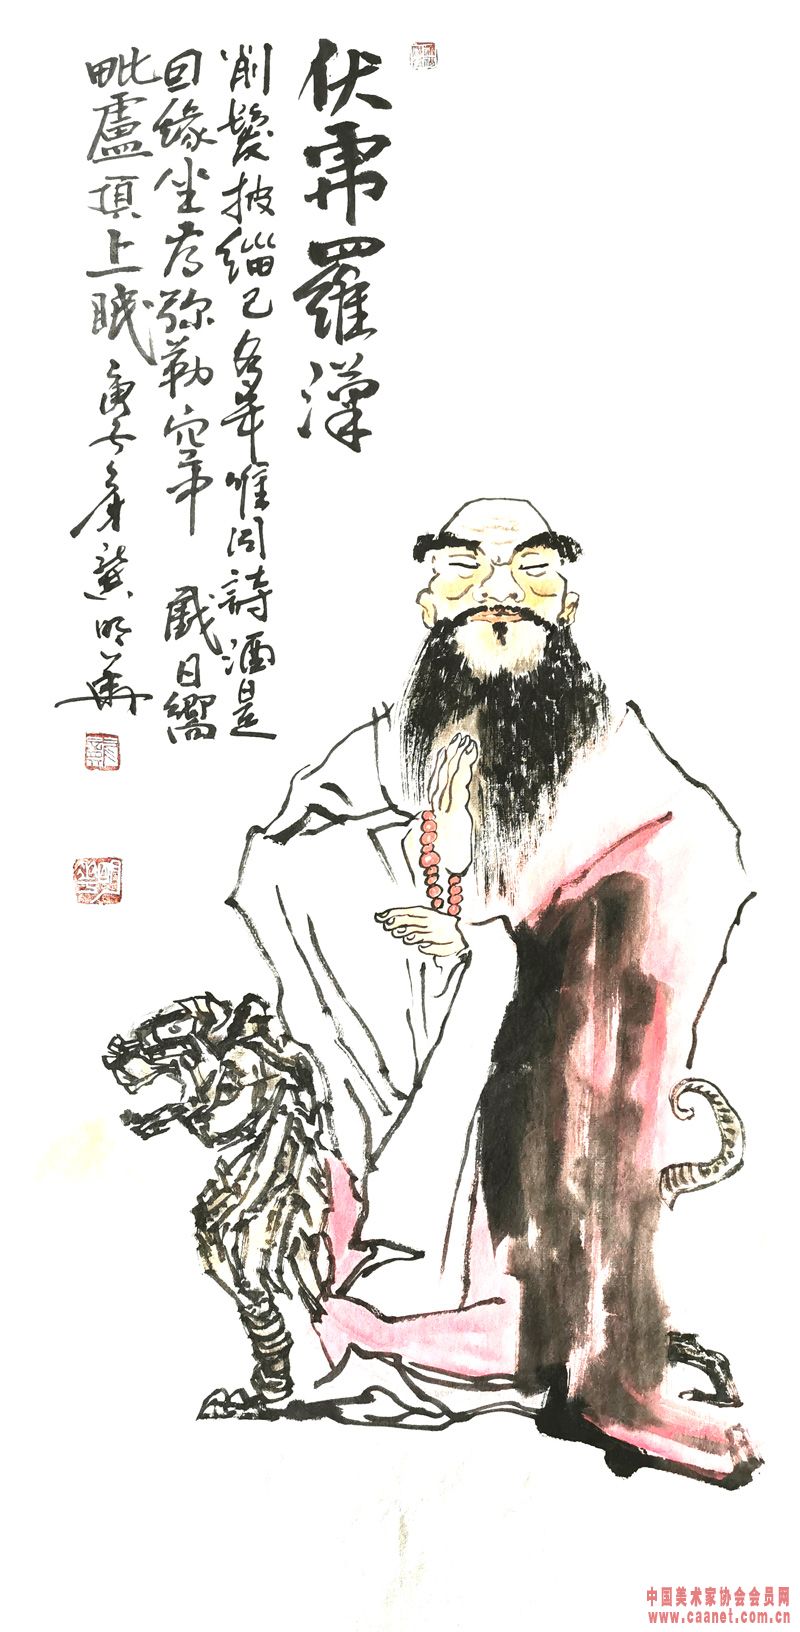 伏虎羅漢
削髮披緇已多年唯同詩酒是
因緣坐看弥勒空中戲日嚮
毗盧頂上眠 庚子 龔明華
中国美术家协会会员网
www.caanet.com.cn